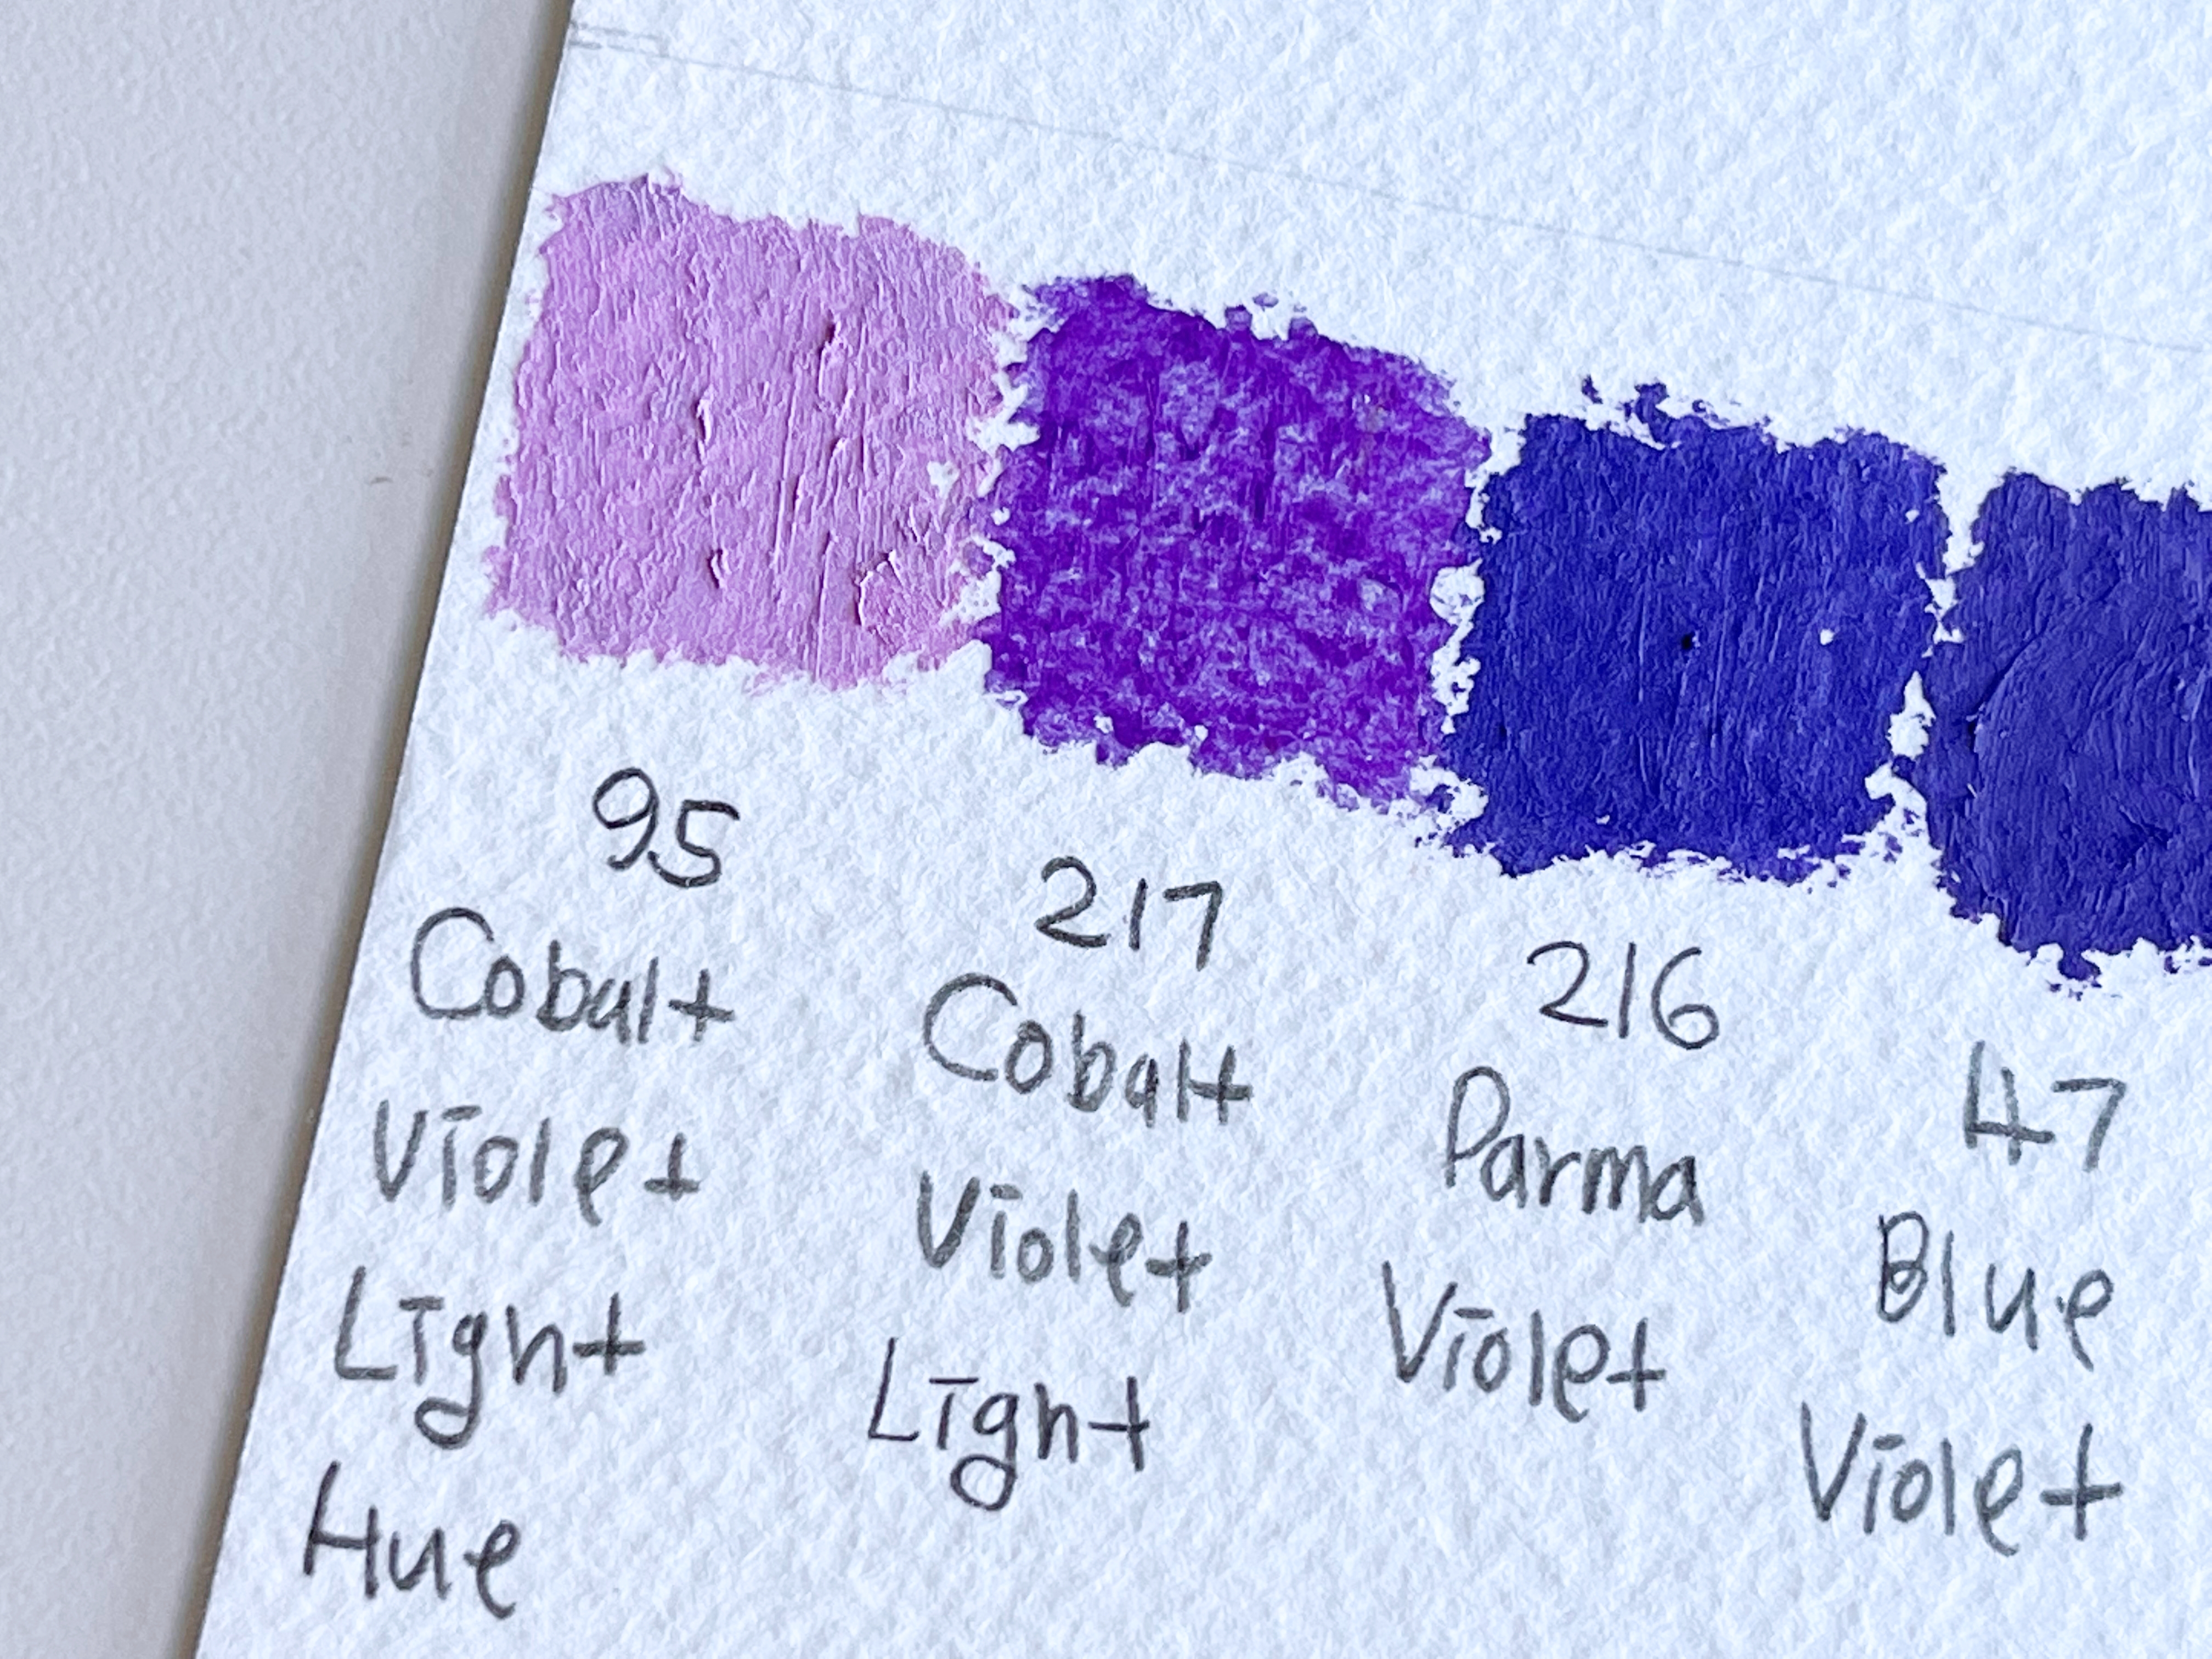 95
Cobalt
Violet
Light
Hue
217
Cobalt
Violet
Light
216
Parma
Violet
47
Blue
Violet